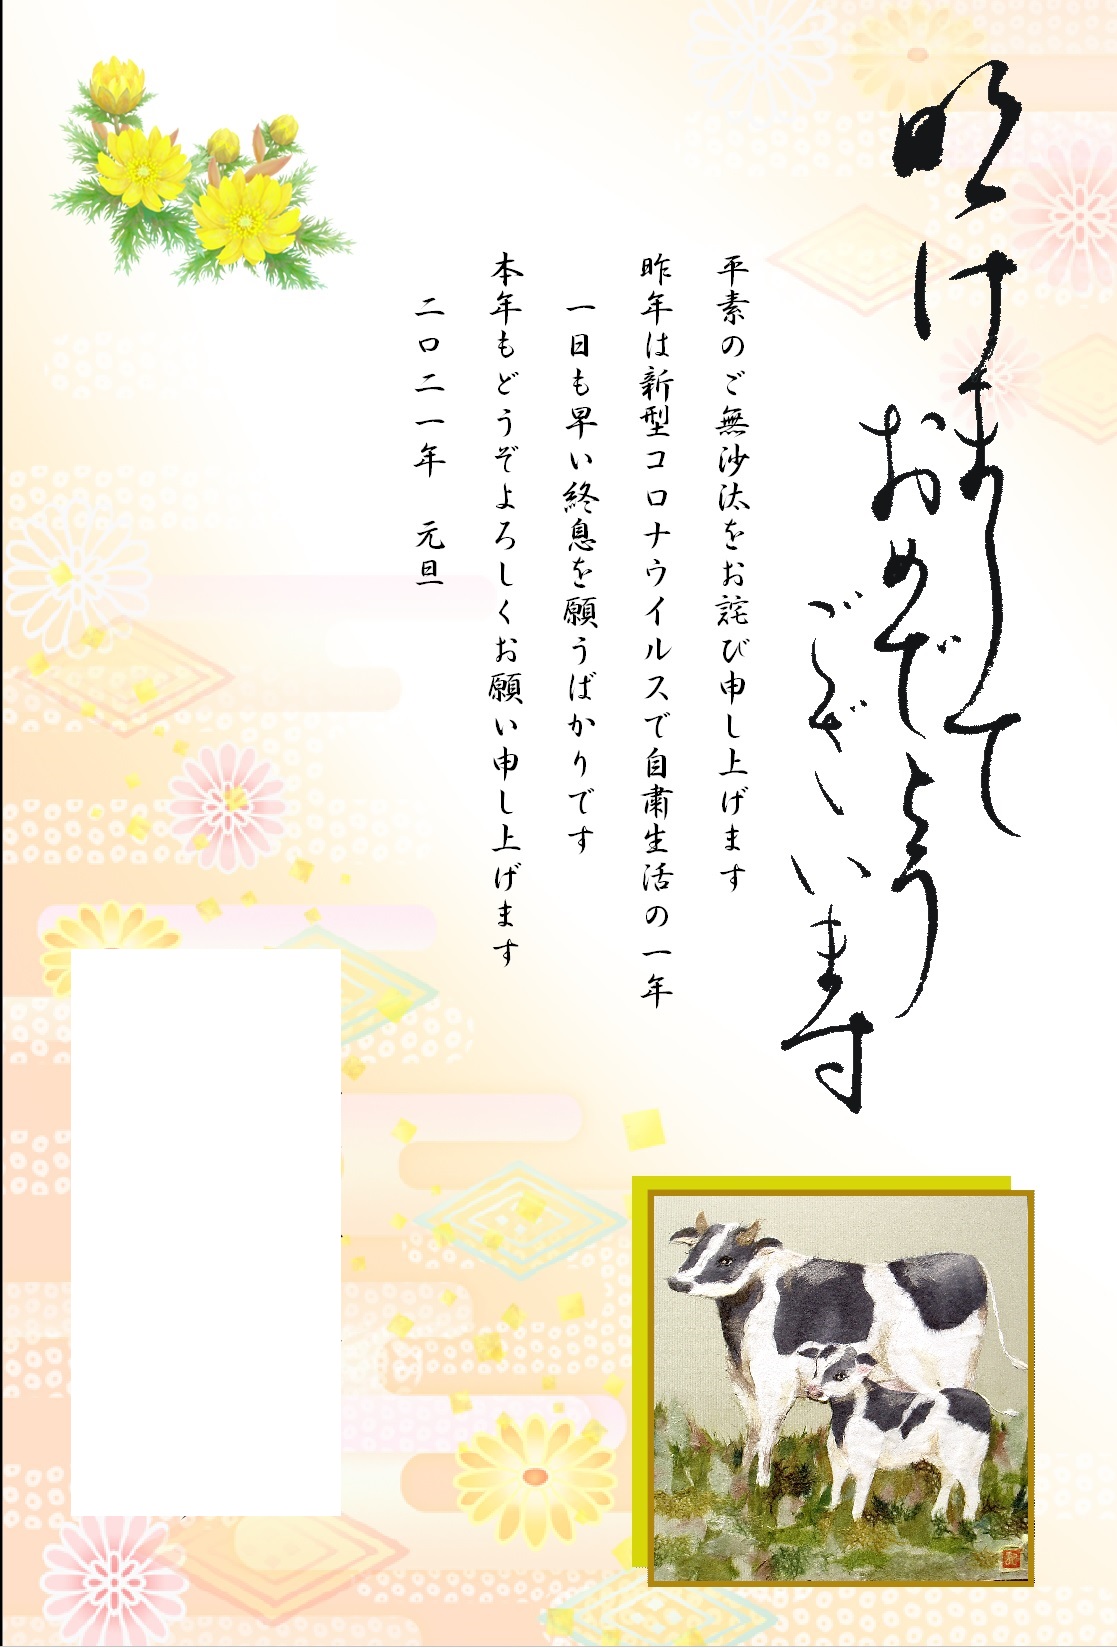 明けまして
おめでとう
ございます
平素のご無沙汰をお詫び申し上げます
昨年は新型コロナウイルスで自粛生活の一年
一日も早い終息を願うばかりです
本年もどうぞよろしくお願い申し上げます
二〇二一年　元旦